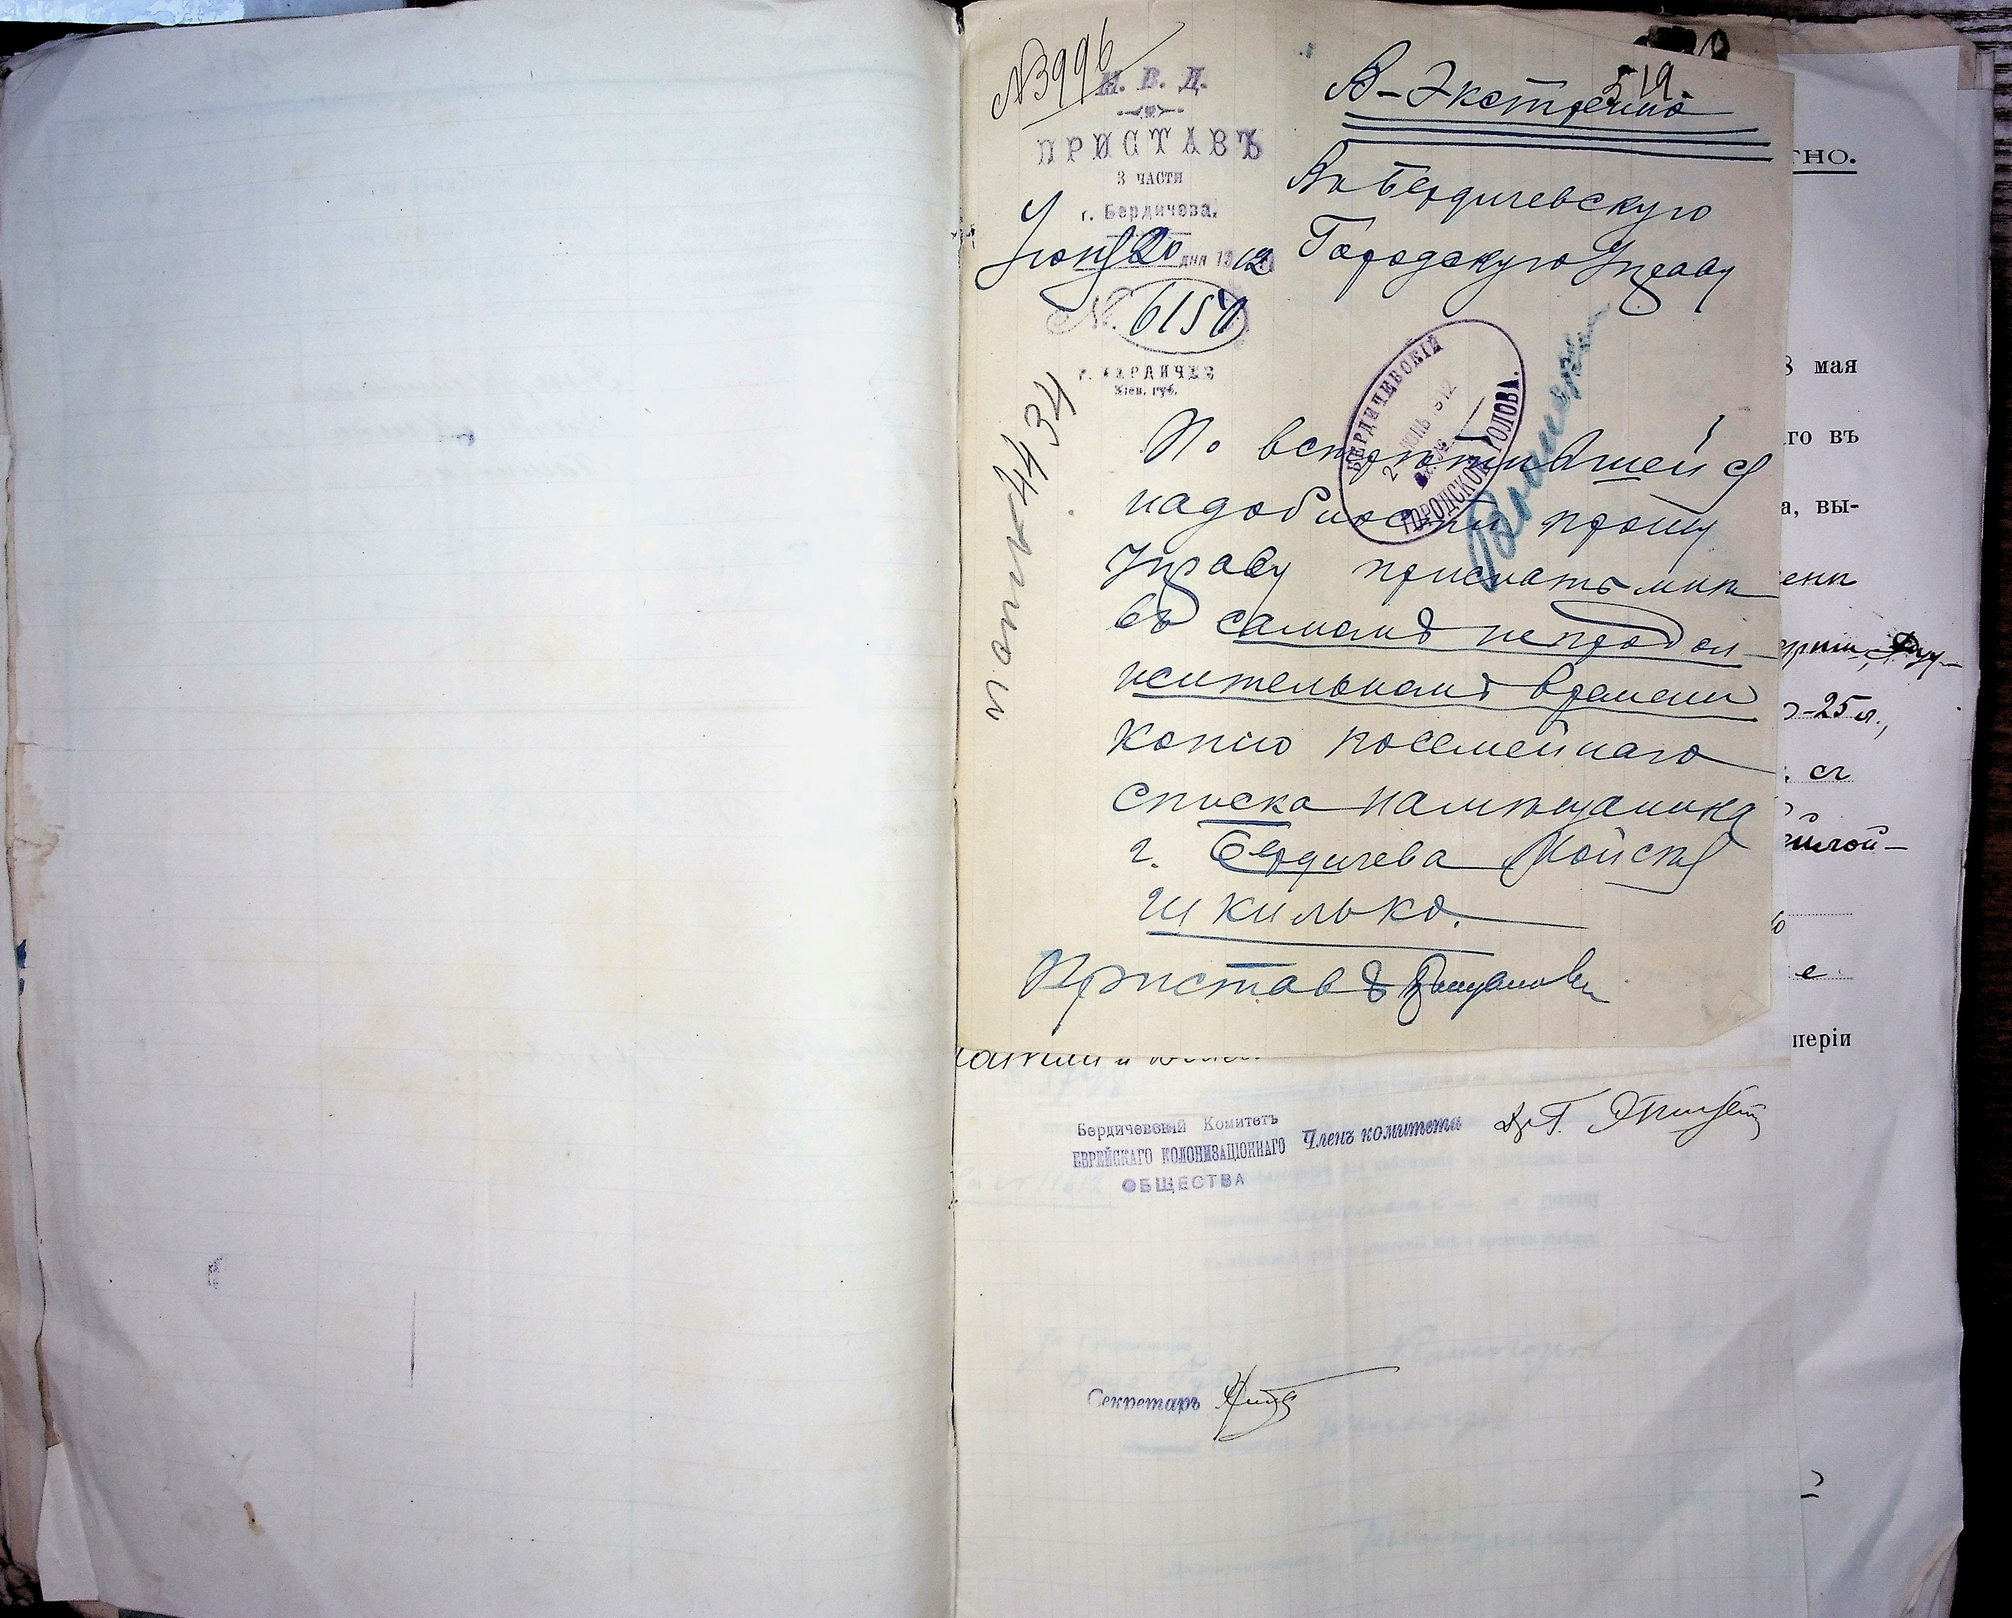 №3996
М. В. Д.
ПРИСТАВЪ
3 ЧАСТИ
г. Бердичева.
Іюня 20 дня 1912
№ 6150
г. БЕРДИЧЕВ
Кіев. губ.
В-Экстренно
519
Въ Бердичевскую
Городскую Управу
БЕРДИЧЕВСКІЙ
ГОРОДСКОЙ ГОЛОВА.
2 ІЮНЬ 1912
4434
По встретившейся
надобности прошу
Управу прислать мнѣ
въ самомъ непродол-
жительномъ времени
копію посемейнаго
списка на мѣщанина
г. Бердичева Мойсея
Шкилько.
Приставъ
ТНО.
8 мая
го въ
а, вы-
-25 л.,
съ
е
періи
Бердичевскій Комитетъ
ЕВРЕЙСКАГО КОЛОНИЗАЦІОННАГО
ОБЩЕСТВА
Членъ комитета
Секретарь